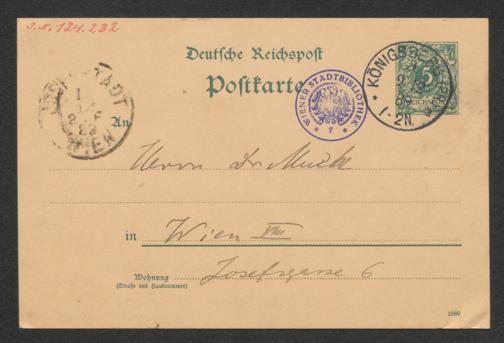 J.N. 124.232
Deutsche Reichspost
Postkarte
WIENER STADTBIBLIOTHEK
* 7 *
1-2N.
5
REICHSPOST
WIEN
An
Herrn Dr Muck
in Wien VIII
Wohnung
(Straße und Hausnummer)
Josefsgasse 6
1089